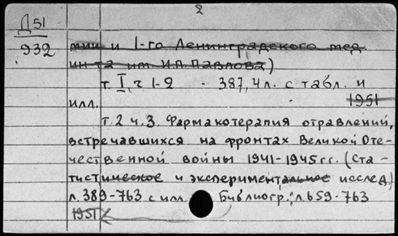 2
Д51
932
мии и 1-го Ленинградского мед.
ин-та им. И.П. Павлова)
т. I, ч 1-2 - 387, 4 л. с табл. и
илл. 1951
т. 2 ч. 3. Фармакотерапия отравлений,
встречавшихся на фронтах Великой Оте-
чественной войны 1941-1945 гг. (Ста-
тистическое и экспериментальное исслед.)
л. 389-763 с илл. Библиогр.: л. 659-763
1951